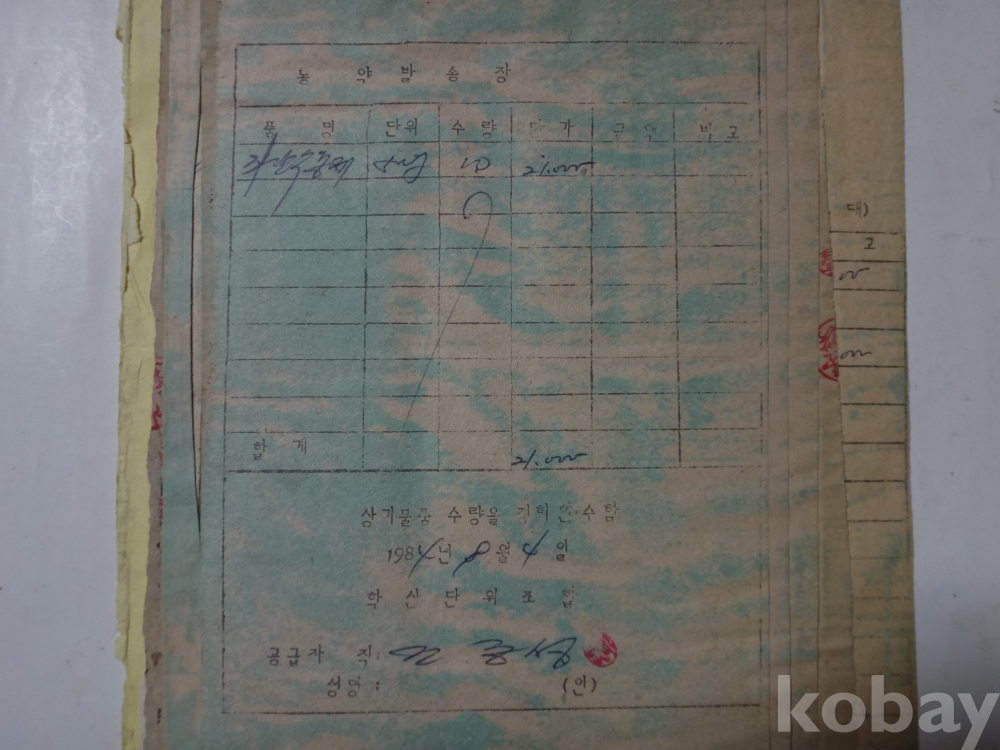 농 약 발 송 장
품 명 단위 수량 단가 금액 비고
10 21.000
합 계 21.000
상기물품 수량을 정히 인수함
1984년 8월 4일
학산단위조합
공급자 직:
성명: (인)
대)
고
kobay